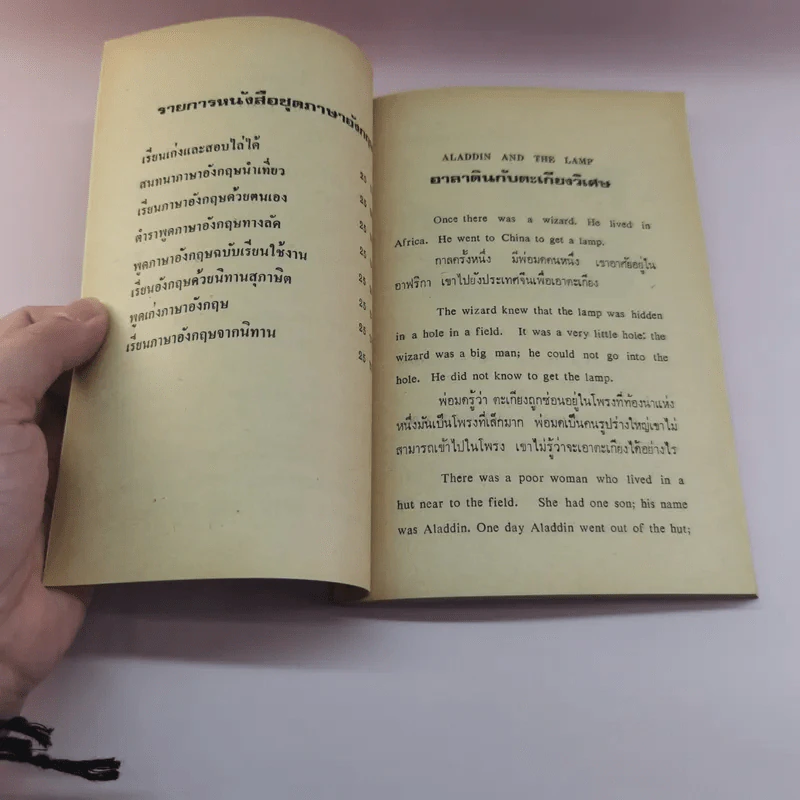 รายการหนังสือชุดภาษาอังกฤษ
เรียนเก่งและสอบไล่ได้
สนทนาภาษาอังกฤษนำเที่ยว 25
เรียนภาษาอังกฤษด้วยตนเอง
ตำราพูดภาษาอังกฤษทางลัด 25
พูดภาษาอังกฤษฉบับเรียนใช้งาน 25
เรียนอังกฤษด้วยนิทานสุภาษิต 25
พูดเก่งภาษาอังกฤษ 25
เรียนภาษาอังกฤษจากนิทาน 25
ALADDIN AND THE LAMP
อาลาดินกับตะเกียงวิเศษ
Once there was a wizard. He lived in
Africa. He went to China to get a lamp.
กาลครั้งหนึ่ง มีพ่อมดคนหนึ่ง เขาอาศัยอยู่ใน
อาฟริกา เขาไปยังประเทศจีนเพื่อเอาตะเกียง
The wizard knew that the lamp was hidden
in a hole in a field. It was a very little hole: the
wizard was a big man; he could not go into the
hole. He did not know to get the lamp.
พ่อมดรู้ว่า ตะเกียงถูกซ่อนอยู่ในโพรงที่ท้องนาแห่ง
หนึ่งมันเป็นโพรงที่เล็กมาก พ่อมดเป็นคนรูปร่างใหญ่เขาไม่
สามารถเข้าไปในโพรง เขาไม่รู้ว่าจะเอาตะเกียงได้อย่างไร
There was a poor woman who lived in a
hut near to the field. She had one son; his name
was Aladdin. One day Aladdin went out of the hut;